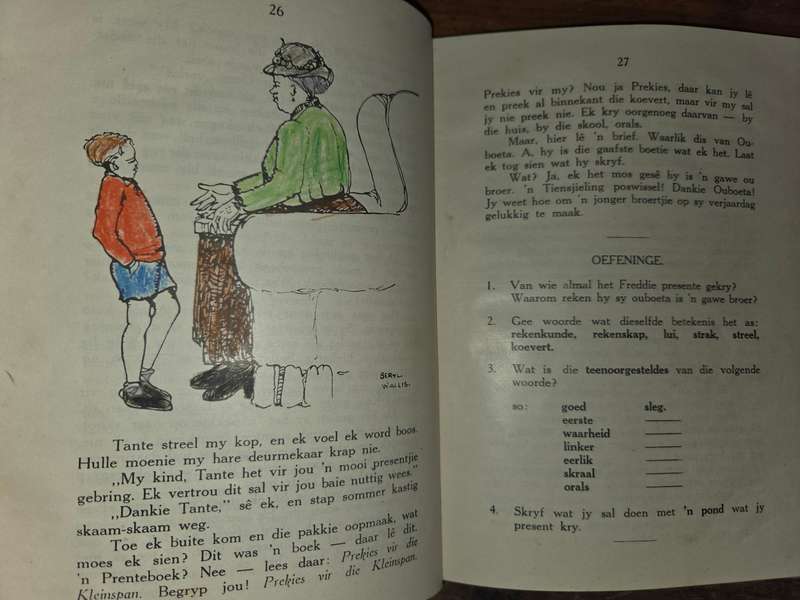 26
BERYL
WALLIS.
Tante streel my kop, en ek voel ek word boos.
Hulle moenie my hare deurmekaar krap nie.
„My kind, Tante het vir jou 'n mooi presentjie
gebring. Ek vertrou dit sal vir jou baie nuttig wees."
„Dankie Tante," sê ek, en stap sommer kastig
skaam-skaam weg.
Toe ek buite kom en die pakkie oopmaak, wat
moes ek sien? Dit was 'n boek — daar lê dit.
'n Prenteboek? Nee — lees daar: Prekies vir die
Kleinspan. Begryp jou! Prekies vir die Kleinspan.
27
Prekies vir my? Nou ja Prekies, daar kan jy lê
en preek al binnekant die koevert, maar vir my sal
jy nie preek nie. Ek kry oorgenoeg daarvan — by
die huis, by die skool, orals.
Maar, hier lê 'n brief. Waarlik dis van Ou-
boeta. A, hy is die gaafste boetie wat ek het. Laat
ek tog sien wat hy skryf.
Wat? Ja, ek het mos gesê hy is 'n gawe ou
broer. 'n Tiensjieling poswissel! Dankie Ouboeta!
Jy weet hoe om 'n jonger broertjie op sy verjaardag
gelukkig te maak.
OEFENINGE.
1. Van wie almal het Freddie presente gekry?
Waarom reken hy sy ouboeta is 'n gawe broer?
2. Gee woorde wat dieselfde betekenis het as:
rekenkunde, rekenskap, lui, strak, streel,
koevert.
3. Wat is die teenoorgesteldes van die volgende
woorde?
so: goed sleg.
eerste
waarheid
linker
eerlik
skraal
orals
4. Skryf wat jy sal doen met 'n pond wat jy
present kry.